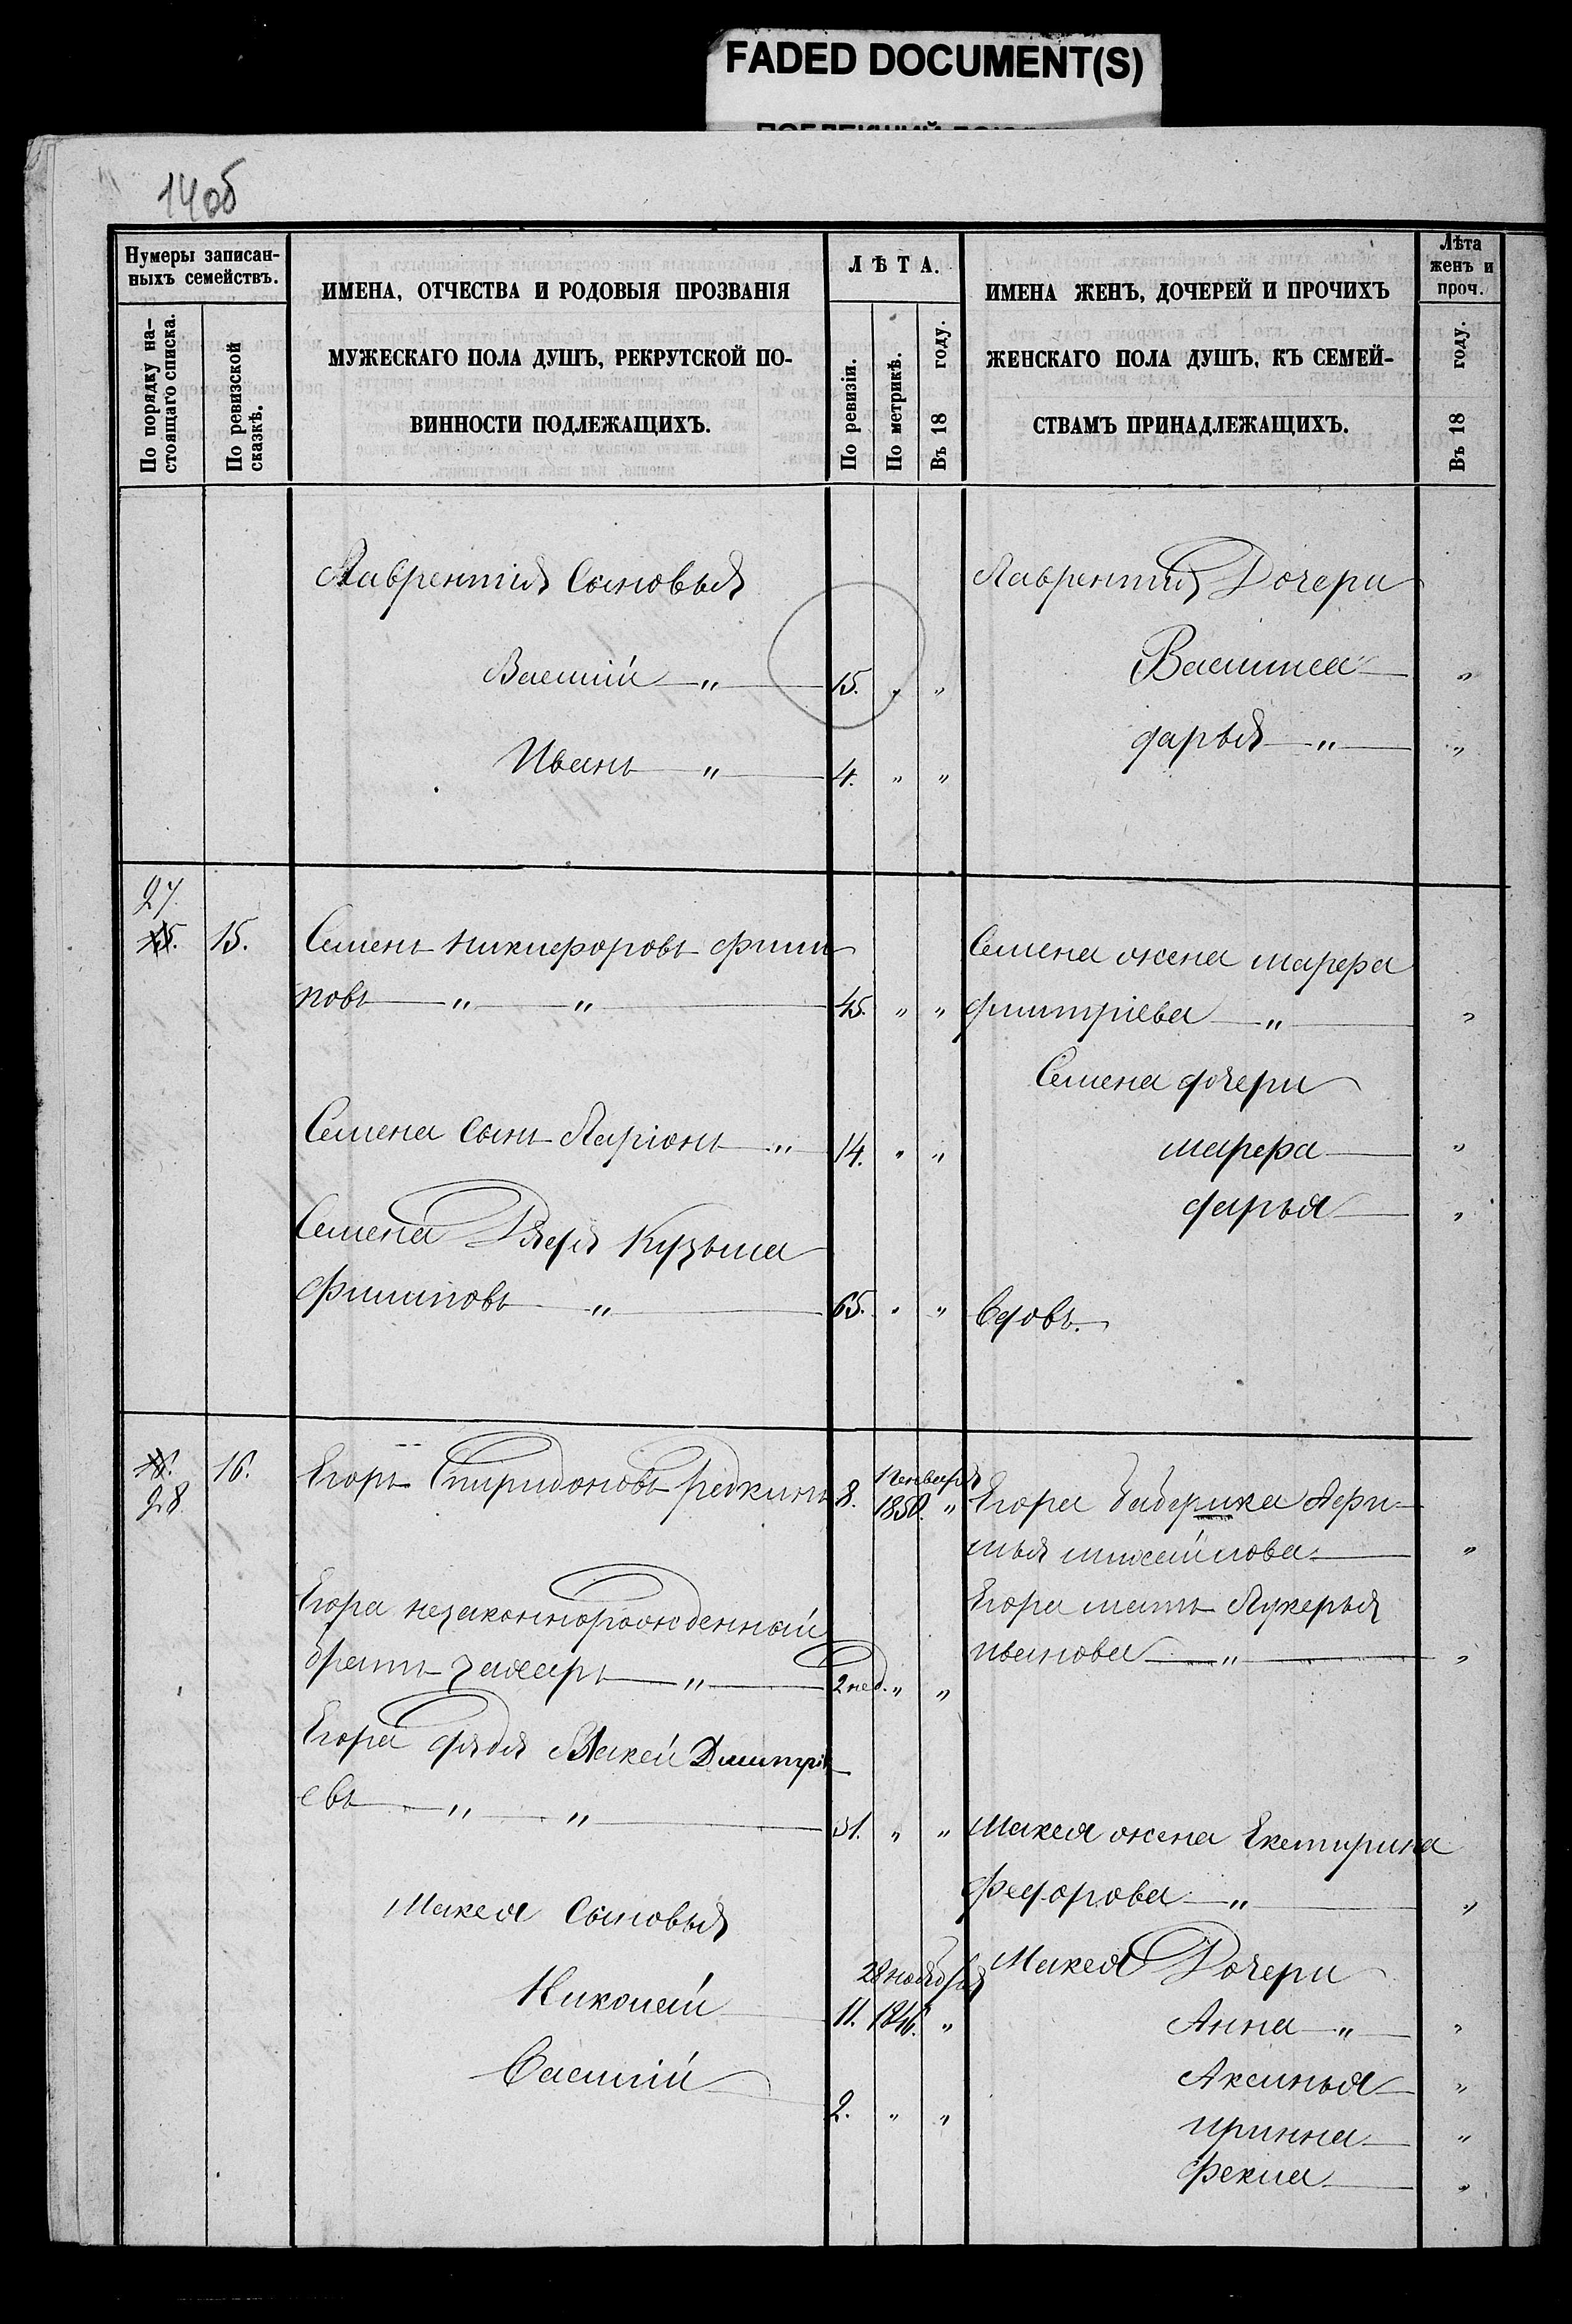 FADED DOCUMENT(S)
14об
Нумеры записан-
ныхъ семействъ.
По порядку на-
стоящаго списка.
По ревизской
сказкѣ.
ИМЕНА, ОТЧЕСТВА И РОДОВЫЯ ПРОЗВАНІЯ
МУЖЕСКАГО ПОЛА ДУШЪ, РЕКРУТСКОЙ ПО-
ВИННОСТИ ПОДЛЕЖАЩИХЪ.
ЛѢТА.
По ревизіи.
По метрикѣ.
Въ 18 году.
ИМЕНА ЖЕНЪ, ДОЧЕРЕЙ И ПРОЧИХЪ
ЖЕНСКАГО ПОЛА ДУШЪ, КЪ СЕМЕЙ-
СТВАМЪ ПРИНАДЛЕЖАЩИХЪ.
Лѣта
женъ и
проч.
Въ 18 году.
Лаврентія Сыновья
Лаврентія Дочери
Василій " 15. " "
Василиса "
Иванъ " 4. " "
дарья " "
27.
15. 15. Семенъ никифоровъ фили
повъ " " 45. " "
Семена жена марфа
дмитріева " "
Семена дочери
Семена Сынъ Ларіонъ " 14. " "
марфа "
дарья "
Семена Дядя Кузьма
Филиповъ " 65. " "
Вдовъ.
16. 16.
28
Егоръ Спиридоновъ редкинъ 8. 1 генваря
1850. "
Егора бабушка
михайлова "
Егора незаконнорожденный
братъ захаръ " 2 нед. " "
Егора мать Лукерья
иванова " "
Егора дядя Макей Дмитрі
евъ " " 31. " "
Макея жена Екатирина
Федорова " "
Макея Сыновья
Николай 11. 28 ноября
1846. "
Василій 2. " "
Макея Дочери
Анна " "
Аксинья "
иринна "
Фекла "